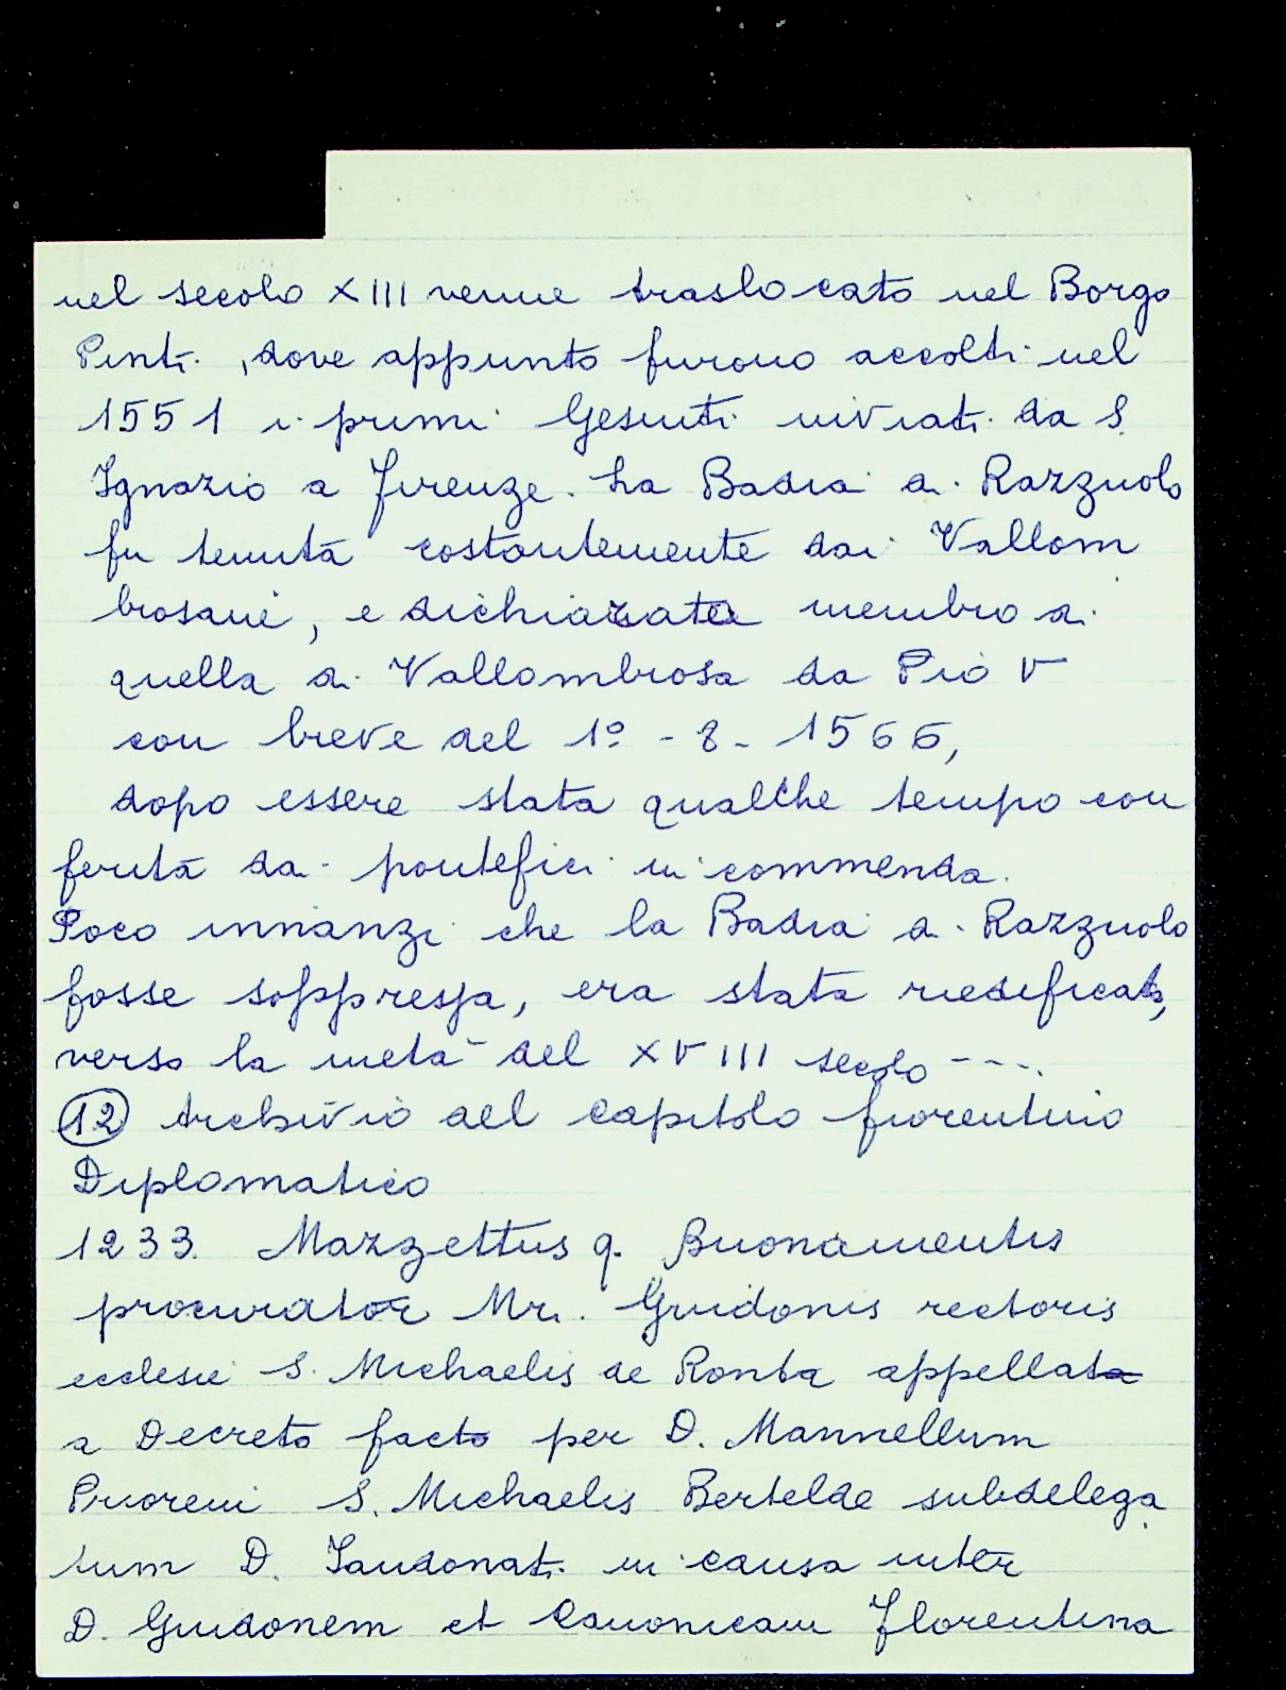 nel secolo XIII venne traslocato nel Borgo
Pinti, dove appunto furono accolti nel
1551 i primi Gesuiti inviati da S.
Ignazio a Firenze. La Badia di Razzuolo
fu tenuta costantemente dai Vallom
brosani, e dichiarata membro di
quella di Vallombrosa da Pio V
con breve del 1º - 8 - 1566,
dopo essere stata qualche tempo con
ferita dai pontefici in commenda.
Poco innanzi che la Badia di Razzuolo
fosse soppressa, era stata riedificata,
verso la metà del XVIII secolo ----
(12) Archivio del Capitolo fiorentino
Diplomatico
1233. Mazzettus q. Buonamentis
procurator Mri. Guidonis rectoris
ecclesie S. Michaelis de Ronta appellat
a Decreto facto per D. Mannellum
Priorem S. Michaelis Bertelde subdelega
tum D. Iandonati in causa inter
D. Guidonem et Canonicam Florentina